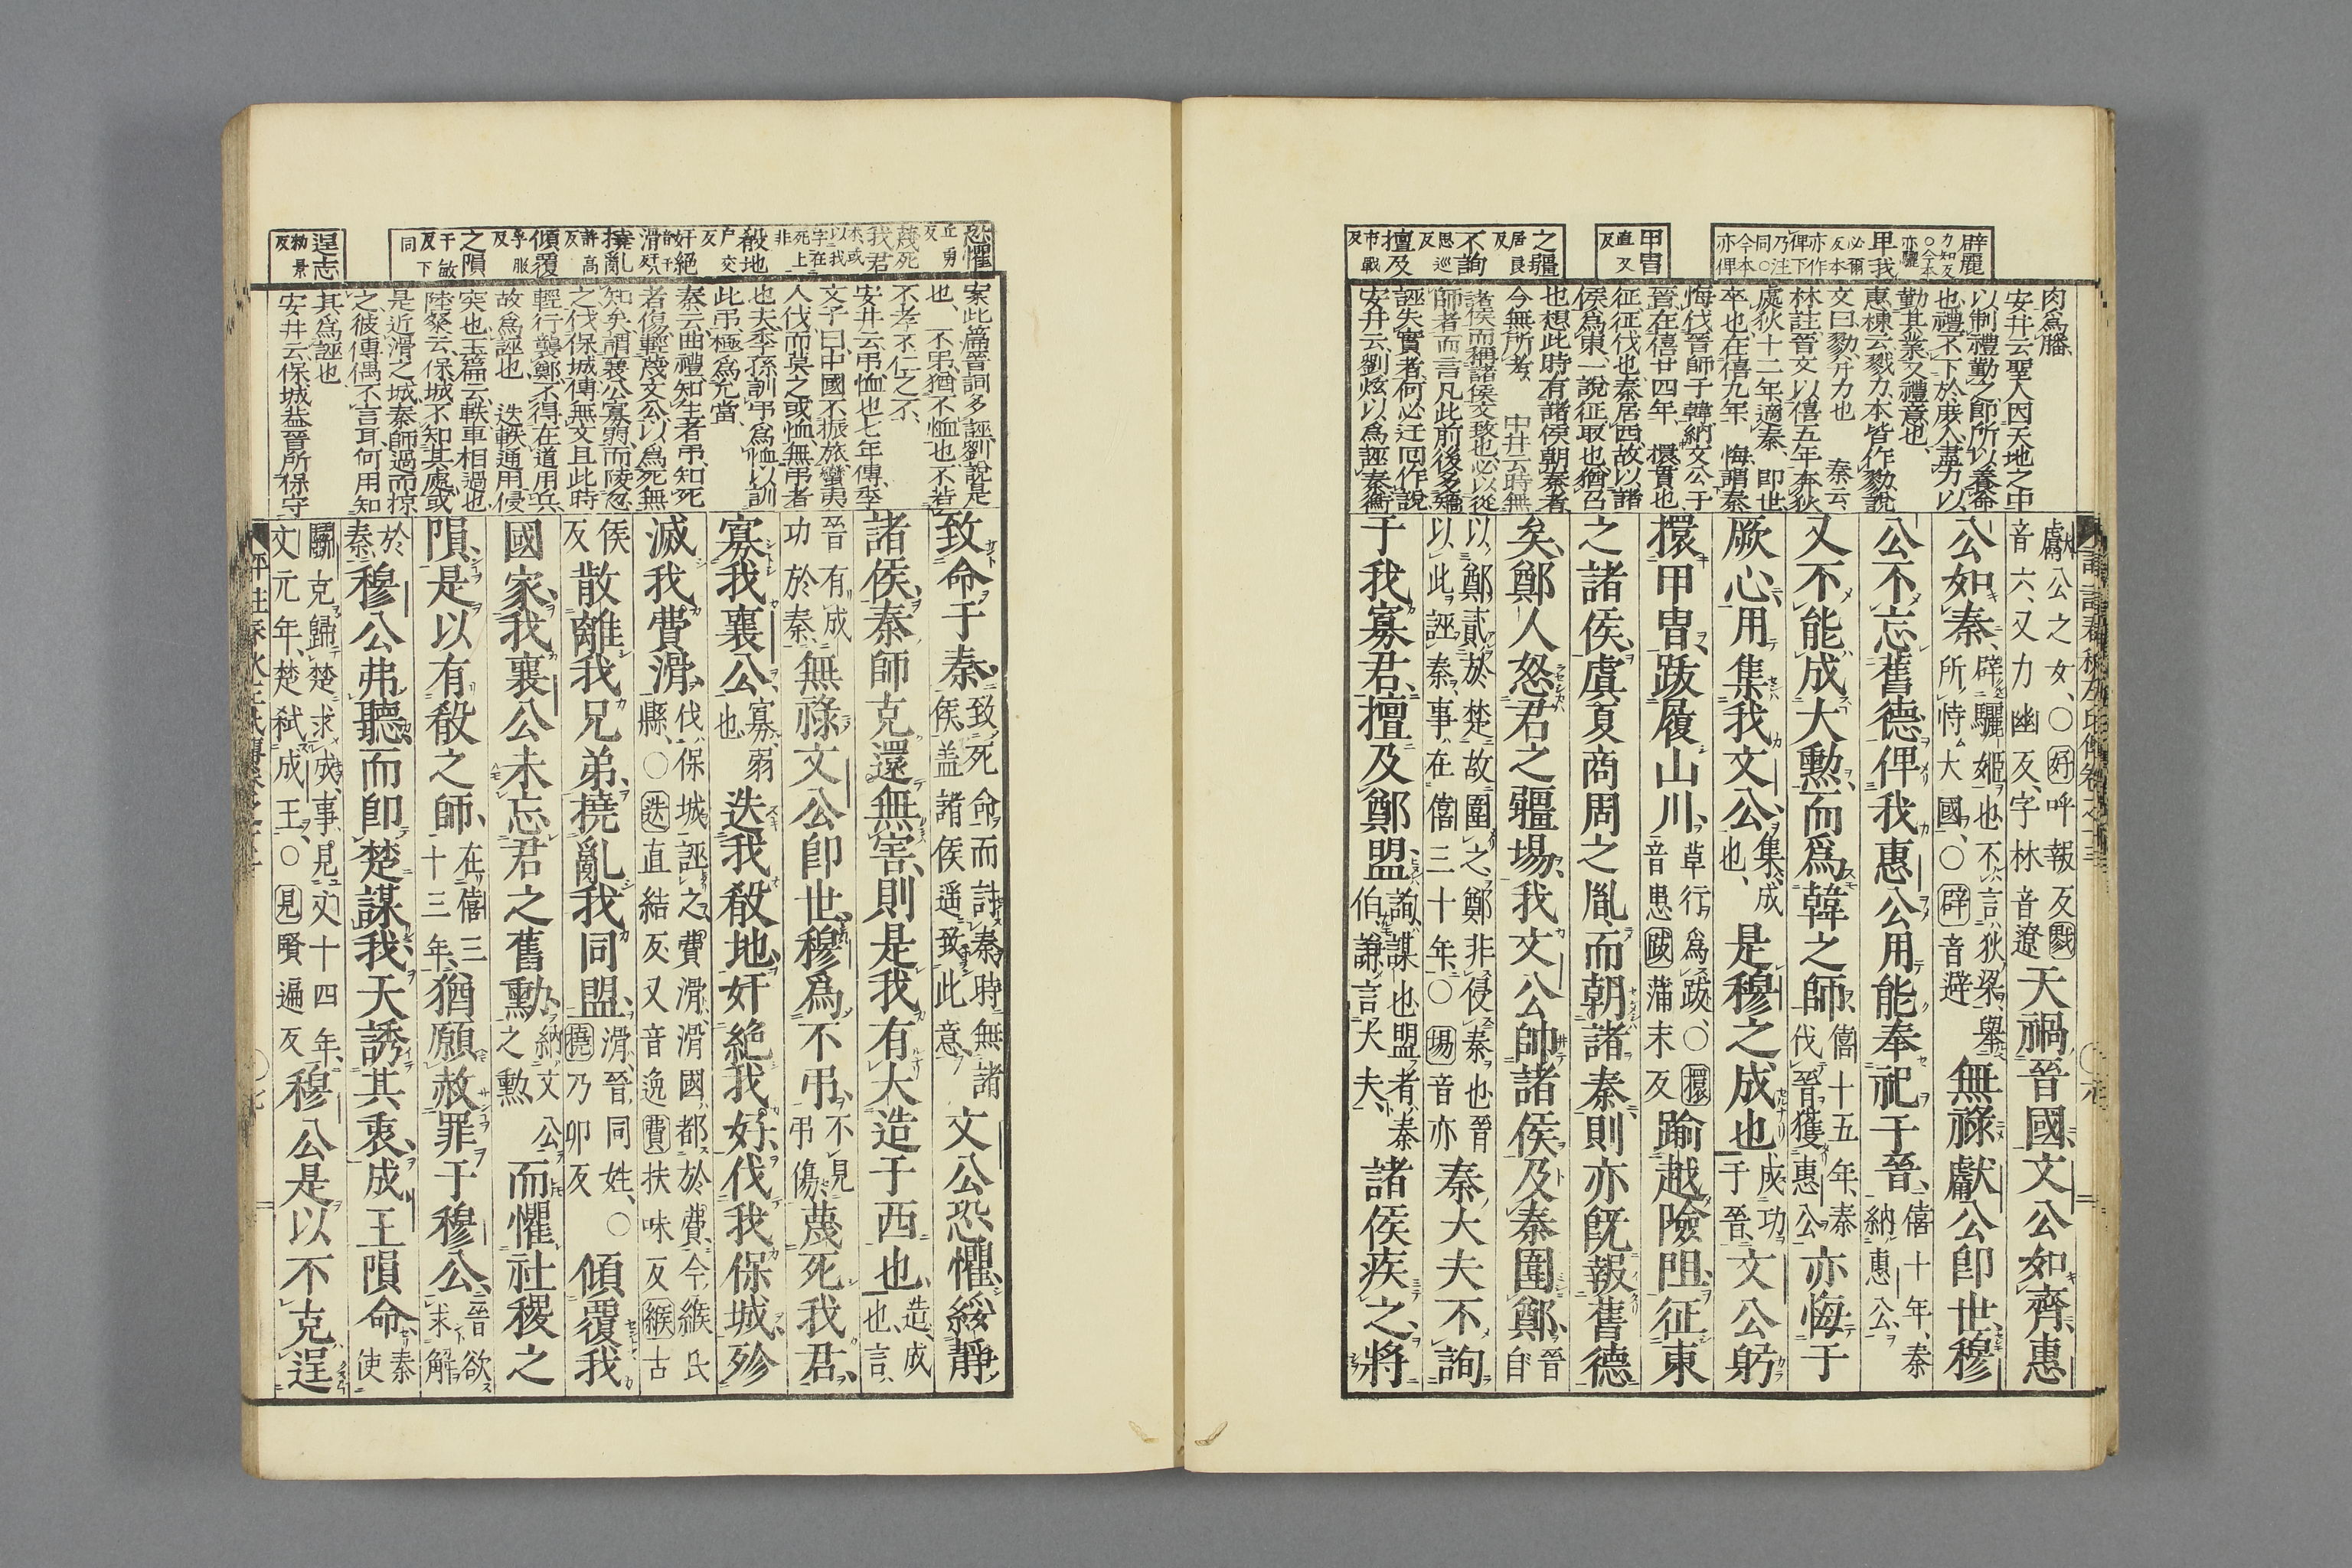 辟麗
力知反
○今本
亦驪
俾我
必爾
反本
亦作
俾下
乃注
同○
今本
亦俾
甲冑
直又
反
之疆
居良
反
不詢
思巡
反
擅及
市戰
反
肉爲膰
安井云聖人因天地之中
以制禮勤之節所以養命
也禮不下於庶人盡力以
勤其業又禮意也
惠棟云戮力本皆作勠說
文曰勠并力也　秦云
林註晉文以僖五年奔狄
處狄十二年適秦、即世
卒也、在僖九年　悔謂秦
悔伐晉師于韓納文公于
晉在僖廿四年　擐貫也
征征伐也秦居西故以諸
侯爲東一說征取也猶召
也想此時有諸侯朝秦者
今無所考　中井云時無
諸侯而稱諸侯文致也必以從
師者而言凡此前後多矯
誣失實者何必迂回作說
安井云劉炫以爲誣秦衛
獻公之女、○好呼報反戮
音六、又力幽反、字林音遼
天禍晉國、文公如齊、惠
公如秦、
辟驪姬也、不言狄梁、舉
所恃大國、○辟音避
無祿獻公即世、穆
公不忘舊德、俾我惠公用能奉祀于晉、
僖十年、秦
納惠公、
又不能成大勲、而爲韓之師、
僖十五年、秦
伐晉獲惠公
亦悔于
厥心、用集我文公、
集、成
也、
是穆之成也、
成功
于晉
文公躬
擐甲冑、跋履山川、
草行爲跋、○擐
音患跋蒲末反
踰越險阻、征東
之諸侯、虞夏商周之胤、而朝諸秦、則亦旣報舊德
矣、鄭人怒君之疆埸、我文公帥諸侯及秦圍鄭、
晉
自
以、鄭貳於楚、故圍之、鄭非侵秦也、晉
以此誣秦、事在僖三十年、○埸音亦
秦大夫不詢
于我寡君、擅及鄭盟、
詢謀也、盟者、秦
伯、謙言大夫、
諸侯疾之、將
恐懼
丘勇
反
蔑死
我君
本或
以我
字在
死上
非
殽地
戶交
反
奸絕
音干
滑
撓亂
許高
反
傾覆
芳服
反
之隕
于敏
反下
同
逞志
勑景
反
案此篇晉詞多誣劉說是
也、　不弔、猶不恤也不若
不孝不仁之不、
安井云弔恤也七年傳季
文子曰中國不振旅蠻夷
人伐而莫之或恤無弔者
也夫季孫訓弔爲恤以訓
此弔極爲允當、
秦云曲禮知生者弔、知死
者傷輕蔑文公以爲死無
知矣謂襄公寡弱而陵忽
之伐保城傳無文且此時
輕行襲鄭不得在道用兵
故爲誣也　迭軼通用侵
突也玉篇云軼車相過也
陸粲云、保城不知其處或
是近滑之城秦師過而掠
之彼傳偶不言耳何用知
其爲誣也
安井云保城益晉所保守
致命于秦、
致死命而討秦、時無諸
侯蓋諸侯遥致此意、
文公恐懼、綏靜
諸侯、秦師克還無害、則是我有大造于西也、
造、成
也、言、
晉有成
功於秦、
無祿、文公卽世、穆爲不弔、
不見
弔傷、
蔑死我君、
寡我襄公、
寡、弱
也
迭我殽地、奸絕我好、伐我保城殄
滅我費滑、
伐保城、誣之、費滑、滑國、都於費、今緱氏
縣、○迭直結反、又音逸費扶味反緱古
侯
反
散離我兄弟、撓亂我同盟、
滑、晉同姓、○
撓乃卯反
傾覆我
國家、我襄公未忘君之舊勳、
納文公
之勲、
而懼社稷之
隕、是以有殽之師、
在僖三
十三年、
猶願赦罪于穆公、
晉欲
求解
於
秦、
穆公弗聽、而卽楚謀我、天誘其衷、成王隕命、
秦
使
鬭克歸楚求成、事見文十四年、
文元年、楚弑成王、○見賢遍反
穆公是以不克逞